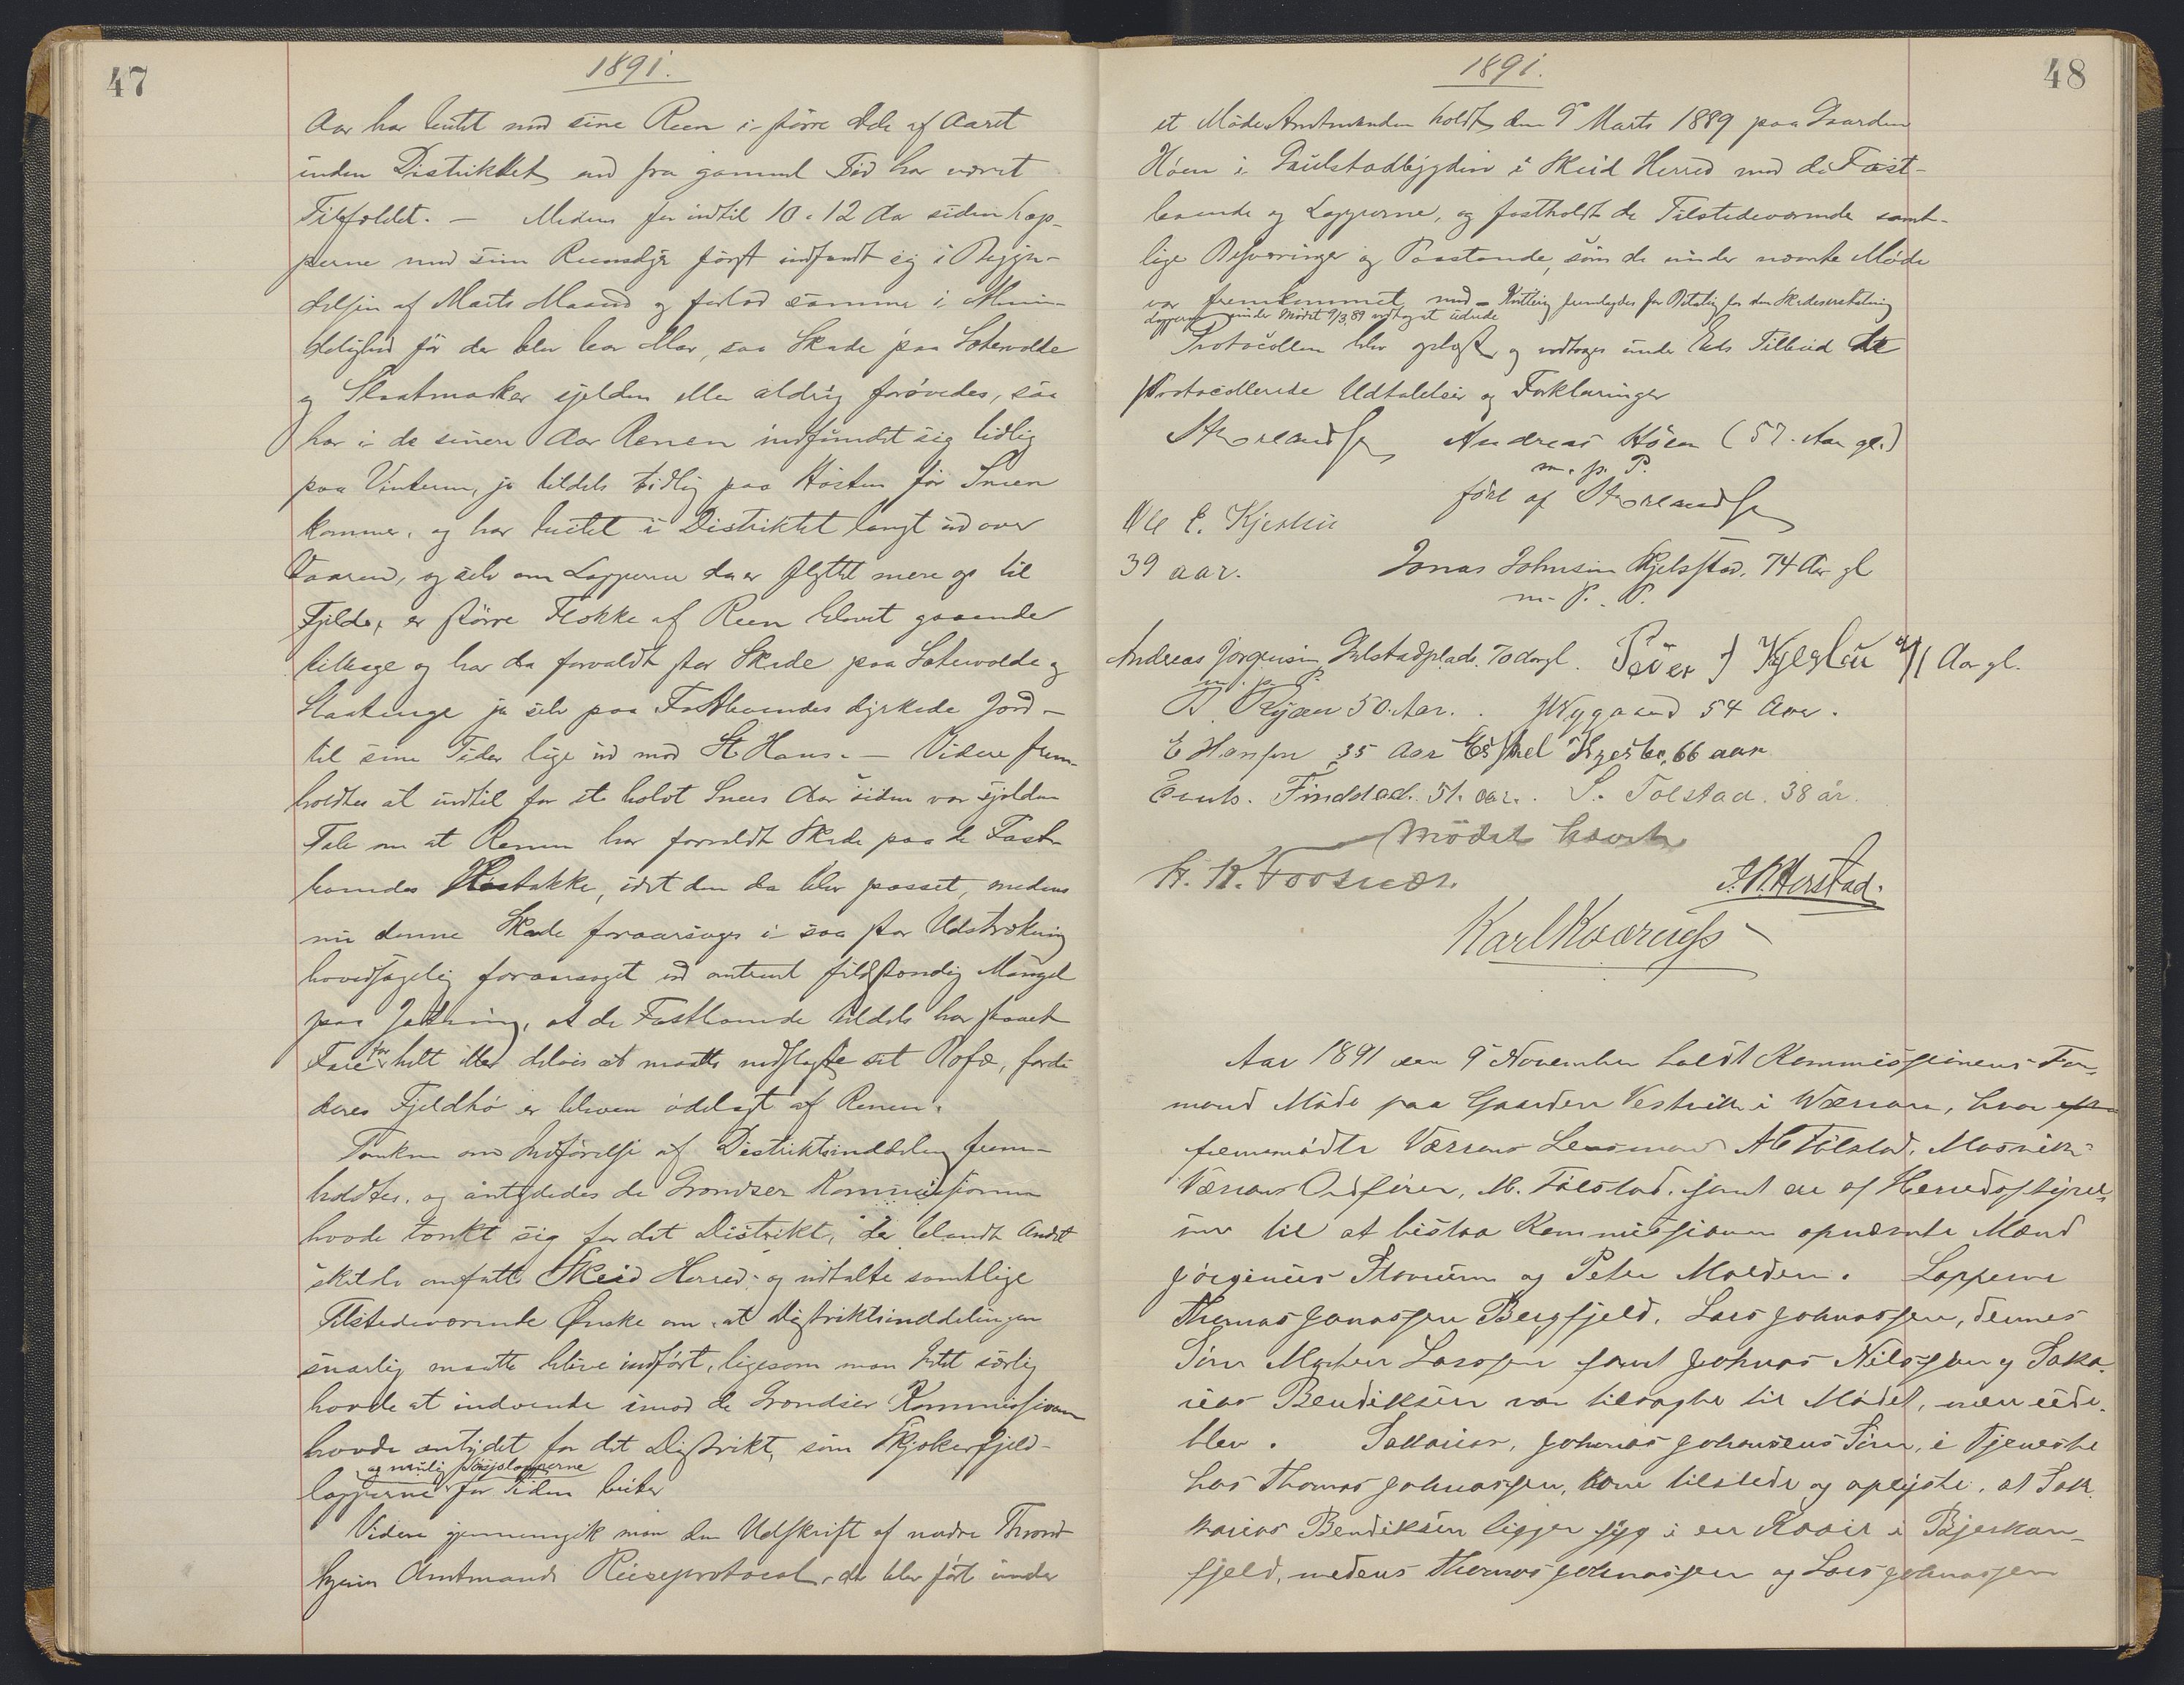 47
1891.
Aar har beitet med sine Reen i större Dele af Aaret
inden Distriktet end fra gammel Tid har været
Tilfældet. — Medens for indtil 10 a 12 Aar siden Lap-
perne med sine Reensdyr først indfandt sig i Begyn-
delsen af Marts Maaned og forlod samme i Almin-
delighed før der blev bar Mar, saa Skade paa Slaatevolde
og Slaatmarker sjelden eller aldrig forövedes, saa
har i de senere Aar Renen indfundet sig tidlig
paa Vinteren, ja tildels tidlig paa Hösten för Sneen
kommer, og har beitet i Distriktet langt ud over
Vaaren, og selv om Lapperne da er flyttet mere op til
Fjelds, er större Flokke af Reen blevet gaaende
tilbage og har da forvoldt stor Skade paa Slaatevolde og
Slaatenge ja selv paa Fastboendes dyrkede Jord —
til sine Tider lige ud mod St Hans. — Videre frem-
holdtes at indtil for et halvt Snes Aar siden var sjelden
Tale om at Renen har forvoldt Skade paa de Fast-
boendes Høstakke, idet den da blev passet, medens
nu denne Skade foraarsages i saa stor Udstrækning
hovedsagelig foraarsaget ved omtrent fuldstændig Mangel
paa Jætning, at de Fastboende tildels har staaet
Fare for helt eller delvis at maatte nedslagte sit Bofæ, fordi
deres Fjeldhö er bleven ödelagt af Renen.
Tanken om Indförelse af Distriktsinddeling frem-
holdtes, og antydedes de Grændser Kommissionen
havde tænkt sig for det Distrikt, der blandt Andet
skulde omfatte Skeid Herred; og udtalte samtlige
Tilstedeværende Ønske om, at Distriktsinddelingen
snarlig maatte blive indført, ligesom man Intet særlig
havde at indvende imod de Grændser Kommissionen
havde antydet for det Distrikt, som Skjækerfjeld-
lapperne og for Tiden beiter
Videre gjennemgik man den Udskrift af nordre Thrond-
hjems Amtmands Reiseprotocol, der blev fört under
48
1891.
et Møde Amtmanden holdt den 9 Marts 1889 paa Gaarden
Höen i Gulstadbygden i Skeid Herred med de Fast-
boende og Lapperne, og fastholdt de Tilstedeværende samt-
lige Besværinger og Paastande, som de under nævnte Møde
var fremkommet med – Kvittering fremlagdes for Betaling for den Skadeserstatning
Lapperne under Mødet 9/3 89 vedtog at udrede
Protocollen blev oplæst og vedtoges under Eds Tilbud de
protocollerede Udtalelser og Forklaringer
Andreas Höen (57 Aar gl.)
m. p. P.
fört af
Ole E. Kjesbu
39 aar.
Jonas Johnsen Gjelstad, 74 Aar gl
m. P. P.
Andreas Jörgensen Gulstadplads. 70 Aar gl. Aar gl.
m. p. P.
50 Aar. J Nygaard 54 Aar.
E Hansen 35 Aar Eskel Kjesbu, 66 aar
Finstad. 51. aar. S. Tolstad. 38 år.
Mödet hævet
K. K. Foosnæs.
Karl Kværings
Aar 1891 den 9 November holdt Kommissionens For-
mand Möde paa Gaarden Vestvik i Værran, hvor
fremmödte Værrans Lensmand A C Tölstad, Mosvik-
Værrans Ordförer, M. Fölstad, samt de af Herredsstyrel-
sen til at bistaa Kommissionen opnævnte Mænd
Jörginus Stavrum og Peter Molden. Lapperne
Thomas Jonassen Bergfjeld, Lars Johnassen, dennes
Sön Morten Larssen samt Johnas Nilssen og Saka-
rias Bendiksen var tilsagte til Mödet, men ude-
blev. Sakarias, Johnas Johansens Sön, i Tjeneste
hos Thomas Johnassen, kom tilstede og oplyste, at Sak-
karias Bendiksen ligger syg i en
fjeld, medens Thomas Johnassen og Lars Johnassen